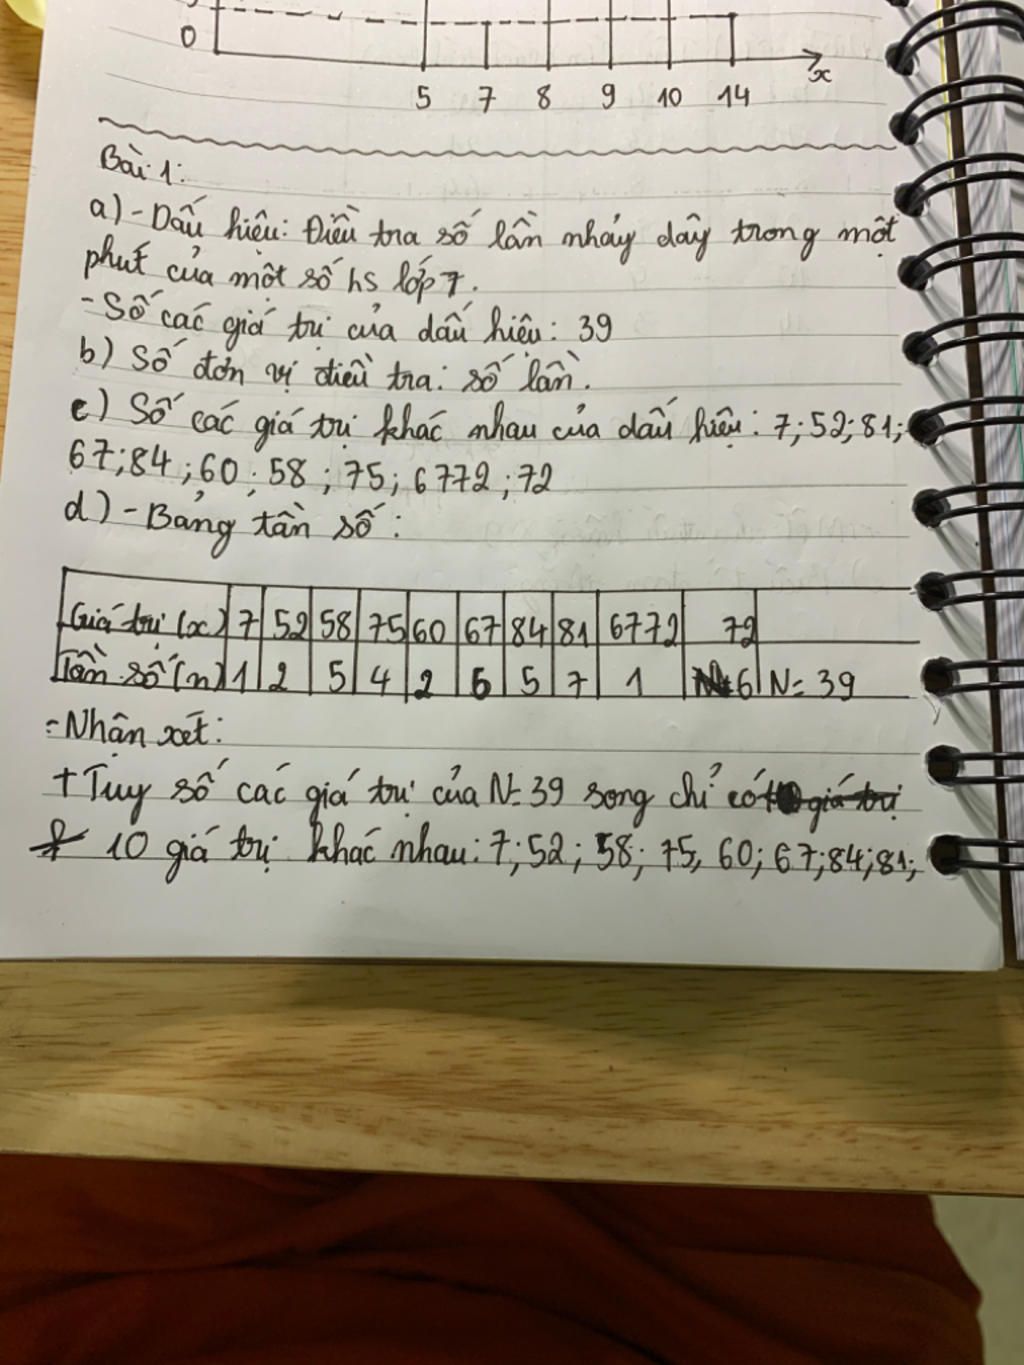 0
x
5 7 8 9 10 14
Bài 1:
a) - Dấu hiệu: Điều tra số lần nhảy dây trong một
phút của một số hs lớp 7.
- Số các giá trị của dấu hiệu: 39
b) Số đơn vị điều tra: số lần.
c) Số các giá trị khác nhau của dấu hiệu: 7; 52; 81;
67; 84; 60; 58; 75; 6772; 72
d) - Bảng tần số:
Giá trị (x) 7 52 58 75 60 67 84 81 6772 72
Tần số (n) 1 2 5 4 2 6 5 7 1 6 N = 39
- Nhận xét:
+ Tuy số các giá trị của N = 39 song chỉ có
10 giá trị khác nhau: 7; 52; 58; 75, 60; 67; 84; 81;